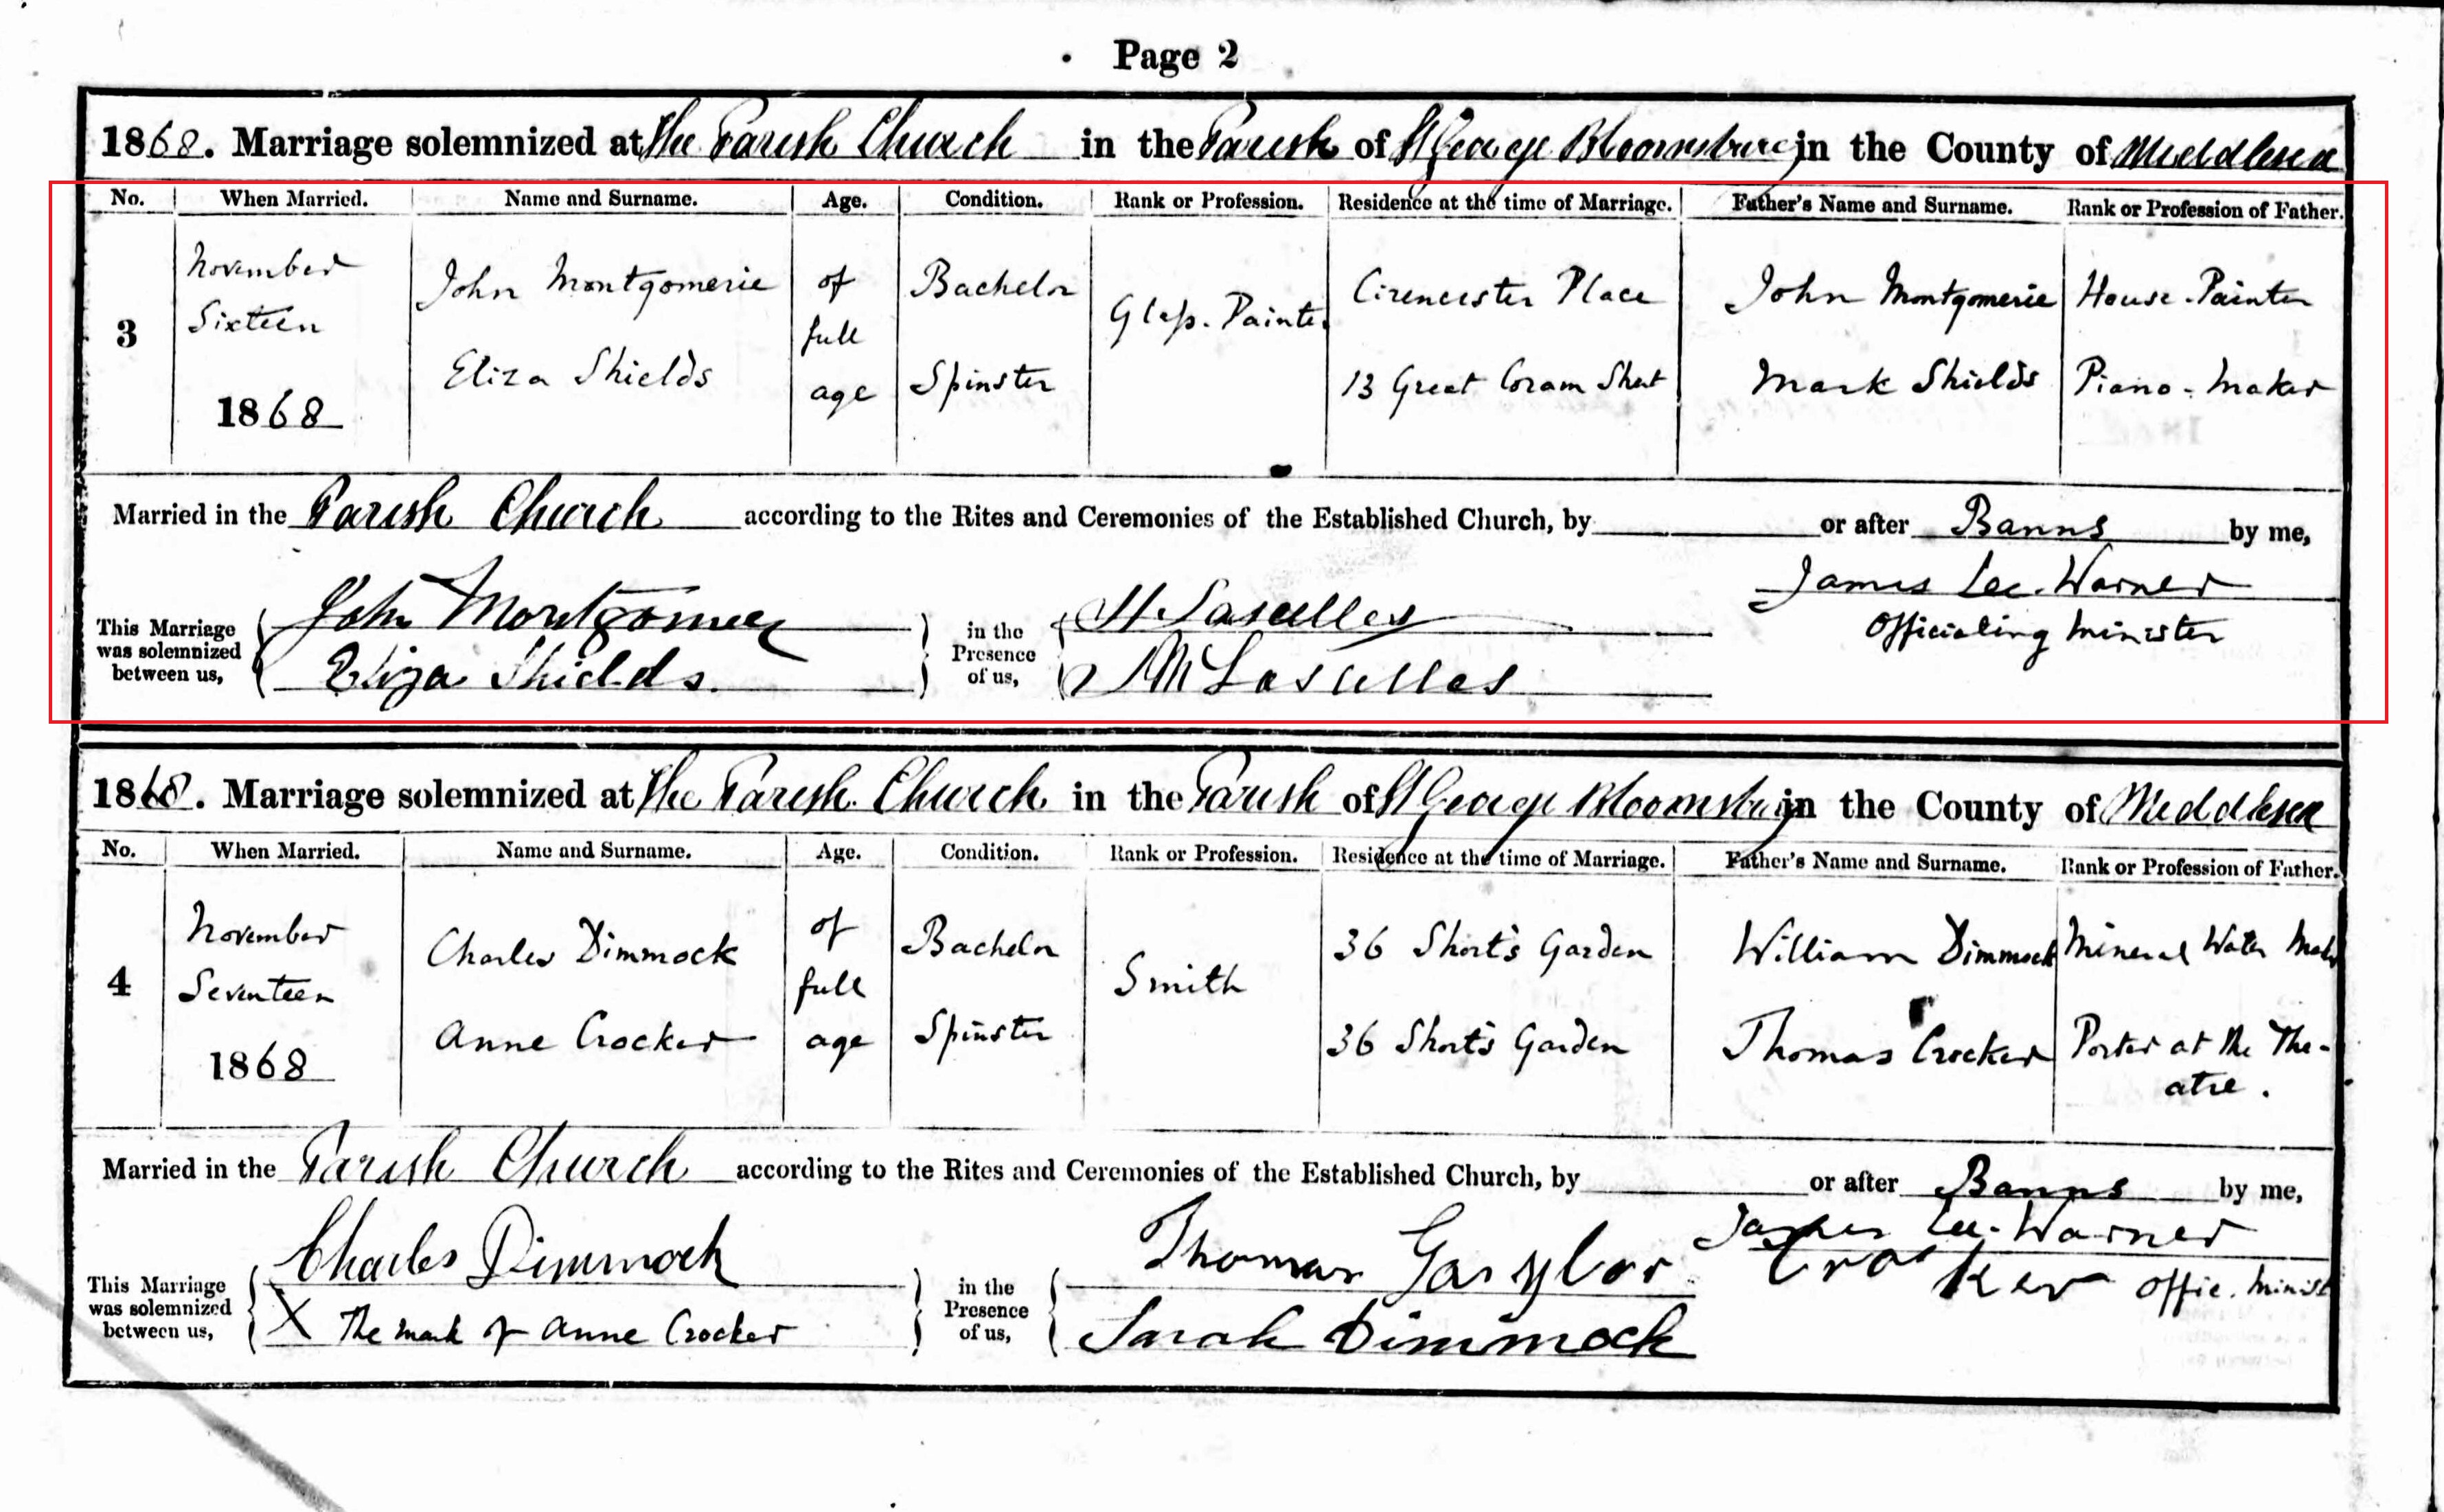 Page 2
1868. Marriage solemnized at the Parish Church in the Parish of St George Bloomsbury in the County of Middlesex
No. When Married. Name and Surname. Age. Condition. Rank or Profession. Residence at the time of Marriage. Father's Name and Surname. Rank or Profession of Father.
3 November Sixteen 1868 John Montgomerie of full age Bachelor Glass-Painter Cirencester Place John Montgomerie House-Painter
Eliza Shields Spinster 13 Great Coram Street Mark Shields Piano-Maker
Married in the Parish Church according to the Rites and Ceremonies of the Established Church, by or after Banns by me,
James Lee-Warner
Officiating Minister
This Marriage was solemnized between us, John Montgomery in the Presence of us, H Lascelles
Eliza Shields. M Lascelles
1868. Marriage solemnized at the Parish Church in the Parish of St George Bloomsbury in the County of Middlesex
No. When Married. Name and Surname. Age. Condition. Rank or Profession. Residence at the time of Marriage. Father's Name and Surname. Rank or Profession of Father.
4 November Seventeen 1868 Charles Dimmock of full age Bachelor Smith 36 Short's Garden William Dimmock Mineral Water Maker
Anne Crocker Spinster 36 Short's Garden Thomas Crocker Porter at the The-
atre.
Married in the Parish Church according to the Rites and Ceremonies of the Established Church, by or after Banns by me,
James Lee-Warner
Offic. Minist
This Marriage was solemnized between us, Charles Dimmock in the Presence of us, Thomas Crocker
X The mark of Anne Crocker Sarah Dimmock